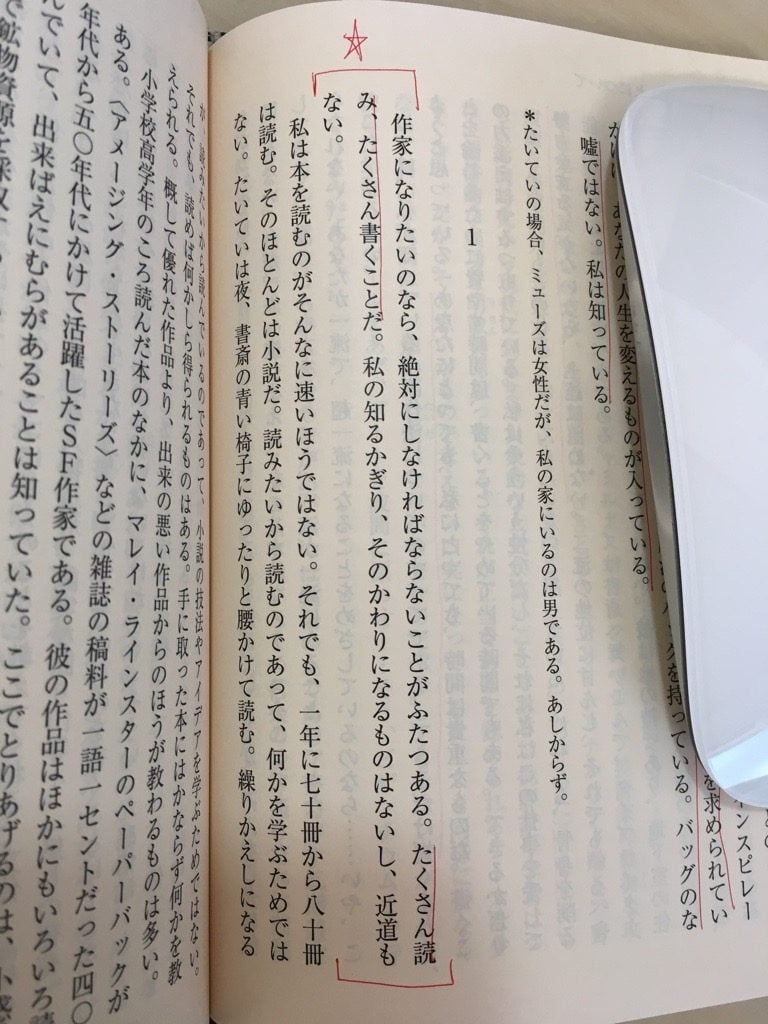 嘘ではない。私は知っている。
あなたの人生を変えるものが入っている。
を持っている。バッグのな
を求められてい
ンスピレー
*たいていの場合、ミューズは女性だが、私の家にいるのは男である。あしからず。
1
作家になりたいのなら、絶対にしなければならないことがふたつある。たくさん読
み、たくさん書くことだ。私の知るかぎり、そのかわりになるものはないし、近道も
ない。
私は本を読むのがそんなに速いほうではない。それでも、一年に七十冊から八十冊
は読む。そのほとんどは小説だ。読みたいから読むのであって、何かを学ぶためでは
ない。たいていは夜、書斎の青い椅子にゆったりと腰かけて読む。繰りかえしになる
が、読みたいから読んでいるのであって、小説の技法やアイデアを学ぶためではない。
それでも、読めば何かしら得られるものはある。手に取った本にはかならず何かを教
えられる。概して優れた作品より、出来の悪い作品からのほうが教わるものは多い。
小学校高学年のころ読んだ本のなかに、マレイ・ラインスターのペーパーバックが
ある。〈アメージング・ストーリーズ〉などの雑誌の稿料が一語一セントだった四〇
年代から五〇年代にかけて活躍したSF作家である。彼の作品はほかにもいろいろ読
んでいて、出来ばえにむらがあることは知っていた。ここでとりあげるのは、小惑
で鉱物資源を採取